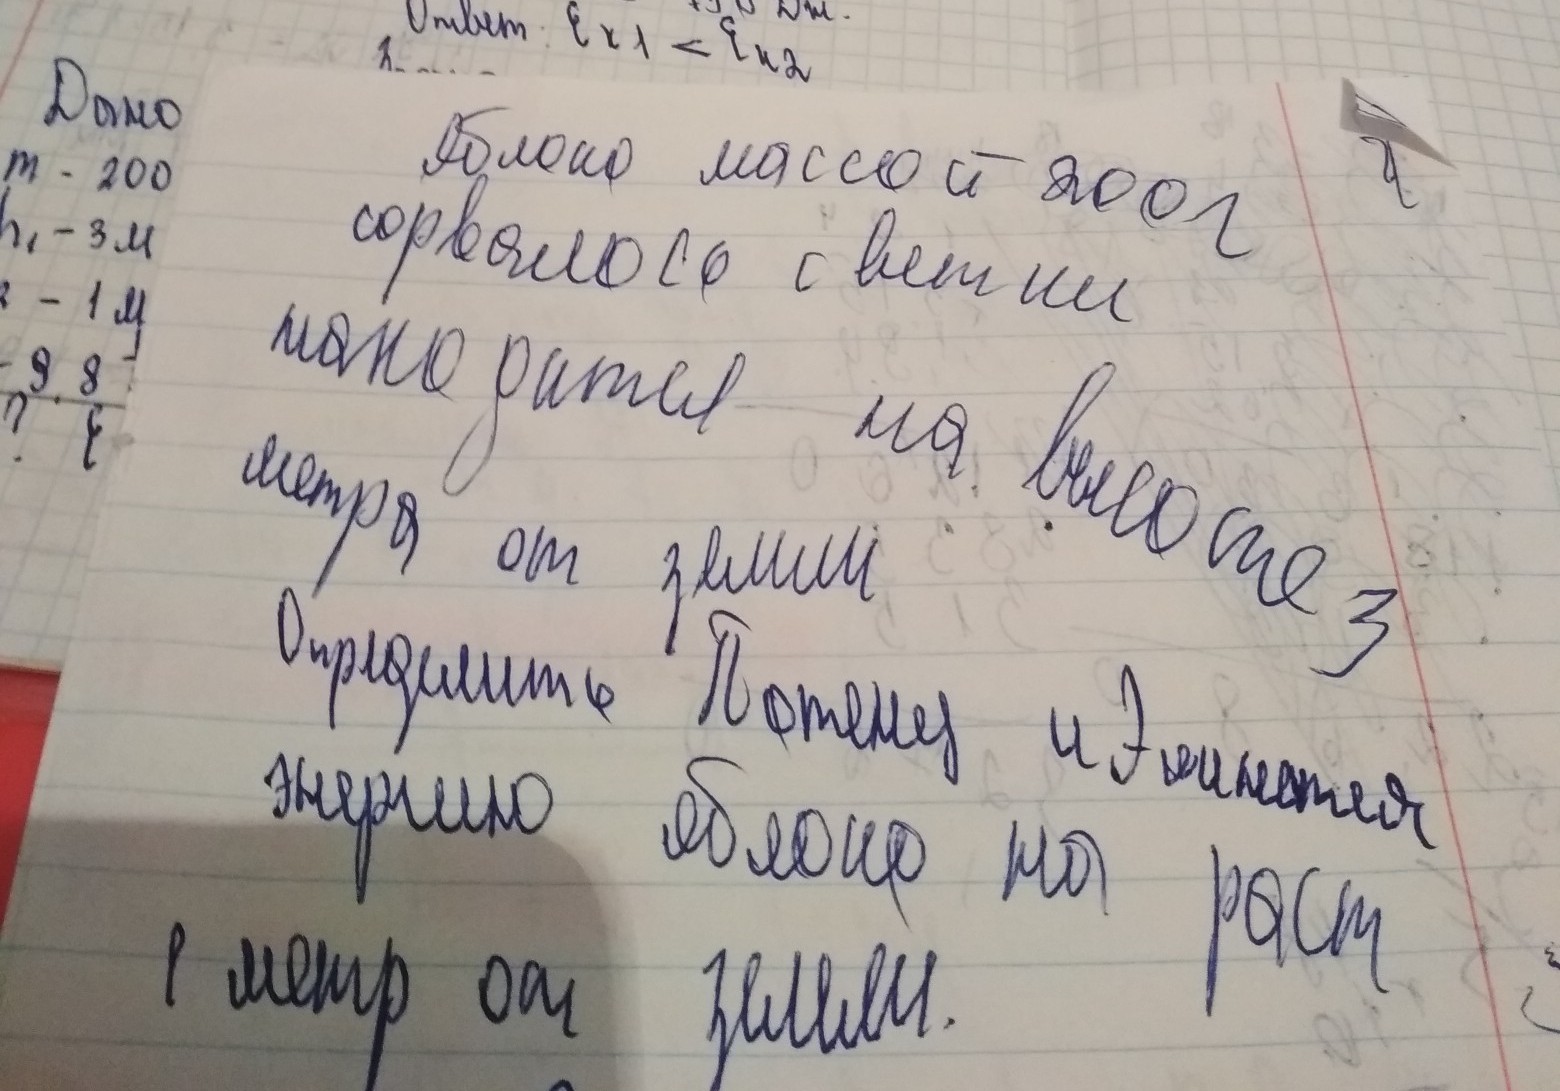 Ответ: Eк1 < Eк2
Дано
m - 200
h₁ - 3м
- 1м
9.8
?
Яблоко массой 200г
сорвалось с ветки
находится на высоте 3
метра от земли
Определить Потенц и
энергию яблока на раст
1 метр от земли.